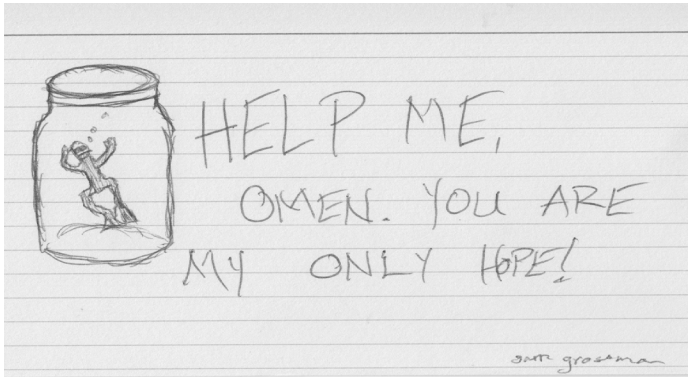 HELP ME,
OMEN. YOU ARE
MY ONLY HOPE!
grossman